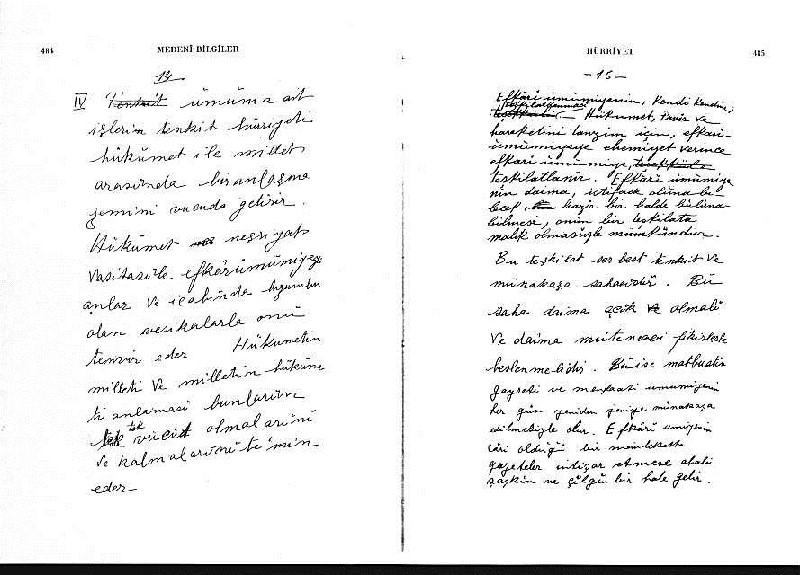 484
MEDENÎ BİLGİLER
13
IV Tenkit ümuma ait
işlerin tenkit hürriyeti
hükûmet ile millet
arasında bir anlaşma
zemini vucuda getirir.
Hükûmet neşriyatı
vasıtasile efkârıumumiyeyi
anlar ve icabında lüzumu
olan vesikalarla onu
tenvir eder Hükumetin
milleti ve milletin hüküme
ti anlaması bunların
tek vücut olmalarını
ve kalmalarını te'min
eder-
HÜRRİYET
485
-15-
Efkârı umumiyenin, kendi kendine,
Hükûmet, tavır ve
hareketini tanzim için, efkârı-
umumiyeye ehemiyet verince
efkârı umumiye,
teşkilatlanır. Efkârı umumiye
nin daima, istifade oluna bi-
lecek, hazır bir halde buluna-
bilmesi, onun bir teşkilata
malik olmasiyle mümkündür.
Bu teşkilat serbest tenkit ve
münakaşa sahasıdır. Bu
saha daima açık olmalı
ve daima mütenevvi fikirlerle
beslenmelidir. Bu ise matbuatın
gayreti ve menfaati umumiyenin
her gün yeniden yeniye münakaşa
edilmesiyle olur. Efkârı umumiyenin
cari olduğu bir memlekette
gazeteler intişar etmese ahali
şaşkın ve çılgın bir hale gelir.